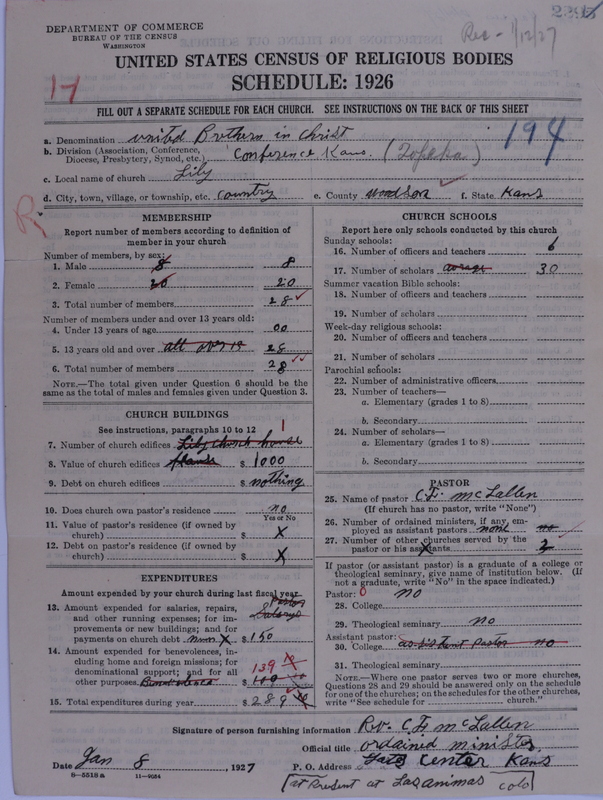 DEPARTMENT OF COMMERCE
BUREAU OF THE CENSUS
WASHINGTON
Rec - 1/12/27
UNITED STATES CENSUS OF RELIGIOUS BODIES
SCHEDULE: 1926
17
FILL OUT A SEPARATE SCHEDULE FOR EACH CHURCH. SEE INSTRUCTIONS ON THE BACK OF THIS SHEET
194
a. Denomination United Brothern in Christ
b. Division (Association, Conference, Diocese, Presbytery, Synod, etc.) Conference Kans. (Topeka)
c. Local name of church Lily
d. City, town, village, or township, etc. Country e. County Woodson f. State Kans
R
MEMBERSHIP
Report number of members according to definition of
member in your church
Number of members, by sex:
1. Male 8 8
2. Female 20 20
3. Total number of members 28
Number of members under and over 13 years old:
4. Under 13 years of age 00
5. 13 years old and over all over 13 28
6. Total number of members 28
NOTE.—The total given under Question 6 should be the
same as the total of males and females given under Question 3.
CHURCH BUILDINGS
See instructions, paragraphs 10 to 12
7. Number of church edifices Lily church house 1
8. Value of church edifices $ 1000
9. Debt on church edifices $ nothing
10. Does church own pastor's residence no
Yes or No
11. Value of pastor's residence (if owned by
church) $ X
12. Debt on pastor's residence (if owned by
church) $ X
EXPENDITURES
Amount expended by your church during last fiscal year
13. Amount expended for salaries, repairs, Pastors
and other running expenses; for im- Salary
provements or new buildings; and for
payments on church debt X $ 150
14. Amount expended for benevolences, in-
cluding home and foreign missions; for
denominational support; and for all 139
other purposes. Benevolences $
15. Total expenditures during year $ 289
CHURCH SCHOOLS
Report here only schools conducted by this church
Sunday schools:
16. Number of officers and teachers 6
17. Number of scholars average 30
Summer vacation Bible schools:
18. Number of officers and teachers
19. Number of scholars
Week-day religious schools:
20. Number of officers and teachers
21. Number of scholars
Parochial schools:
22. Number of administrative officers
23. Number of teachers—
a. Elementary (grades 1 to 8)
b. Secondary
24. Number of scholars—
a. Elementary (grades 1 to 8)
b. Secondary
PASTOR
25. Name of pastor C.F. McLallen
(If church has no pastor, write "None")
26. Number of ordained ministers, if any, em-
ployed as assistant pastors none no
27. Number of other churches served by the
pastor or his assistants 2
If pastor (or assistant pastor) is a graduate of a college or
theological seminary, give name of institution below. (If
not a graduate, write "No" in the space indicated.)
Pastor: 0 no
28. College
29. Theological seminary no
Assistant pastor:
30. College assistant pastor no
31. Theological seminary
NOTE.—Where one pastor serves two or more churches,
Questions 28 and 29 should be answered only on the schedule
for one of the churches; on the schedules for the other churches,
write "See schedule for church."
Signature of person furnishing information Rev. C.F. McLallen
Official title ordained minister
Date Jan 8 1927 P. O. Address Yates Center Kans
8—5518a 11—9064
(at Present at Las animas Colo)